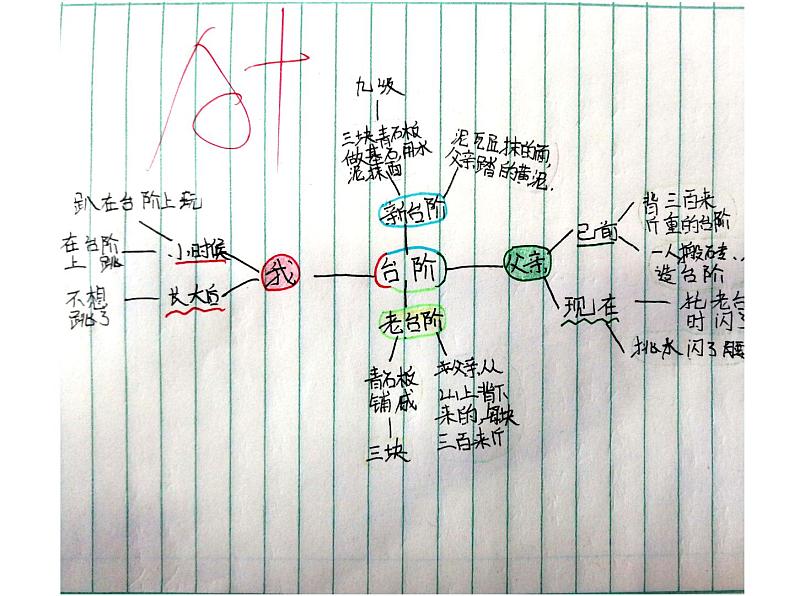 A+
九级
三块青石板
做基石,用水
泥抹面
泥瓦匠抹的面,
父亲踏的黄泥.
新台阶
趴在台阶上玩
在台阶
上跳
小时候
不想
跳了
长大后
我
台阶
父亲
已前
背三百来
斤重的台阶
一人搬石去..
造台阶
现在
托老台
时闪了
挑水闪了腰
老台阶
青石板
铺成
三块
父亲,从
山上背下
来的,每块
三百来斤